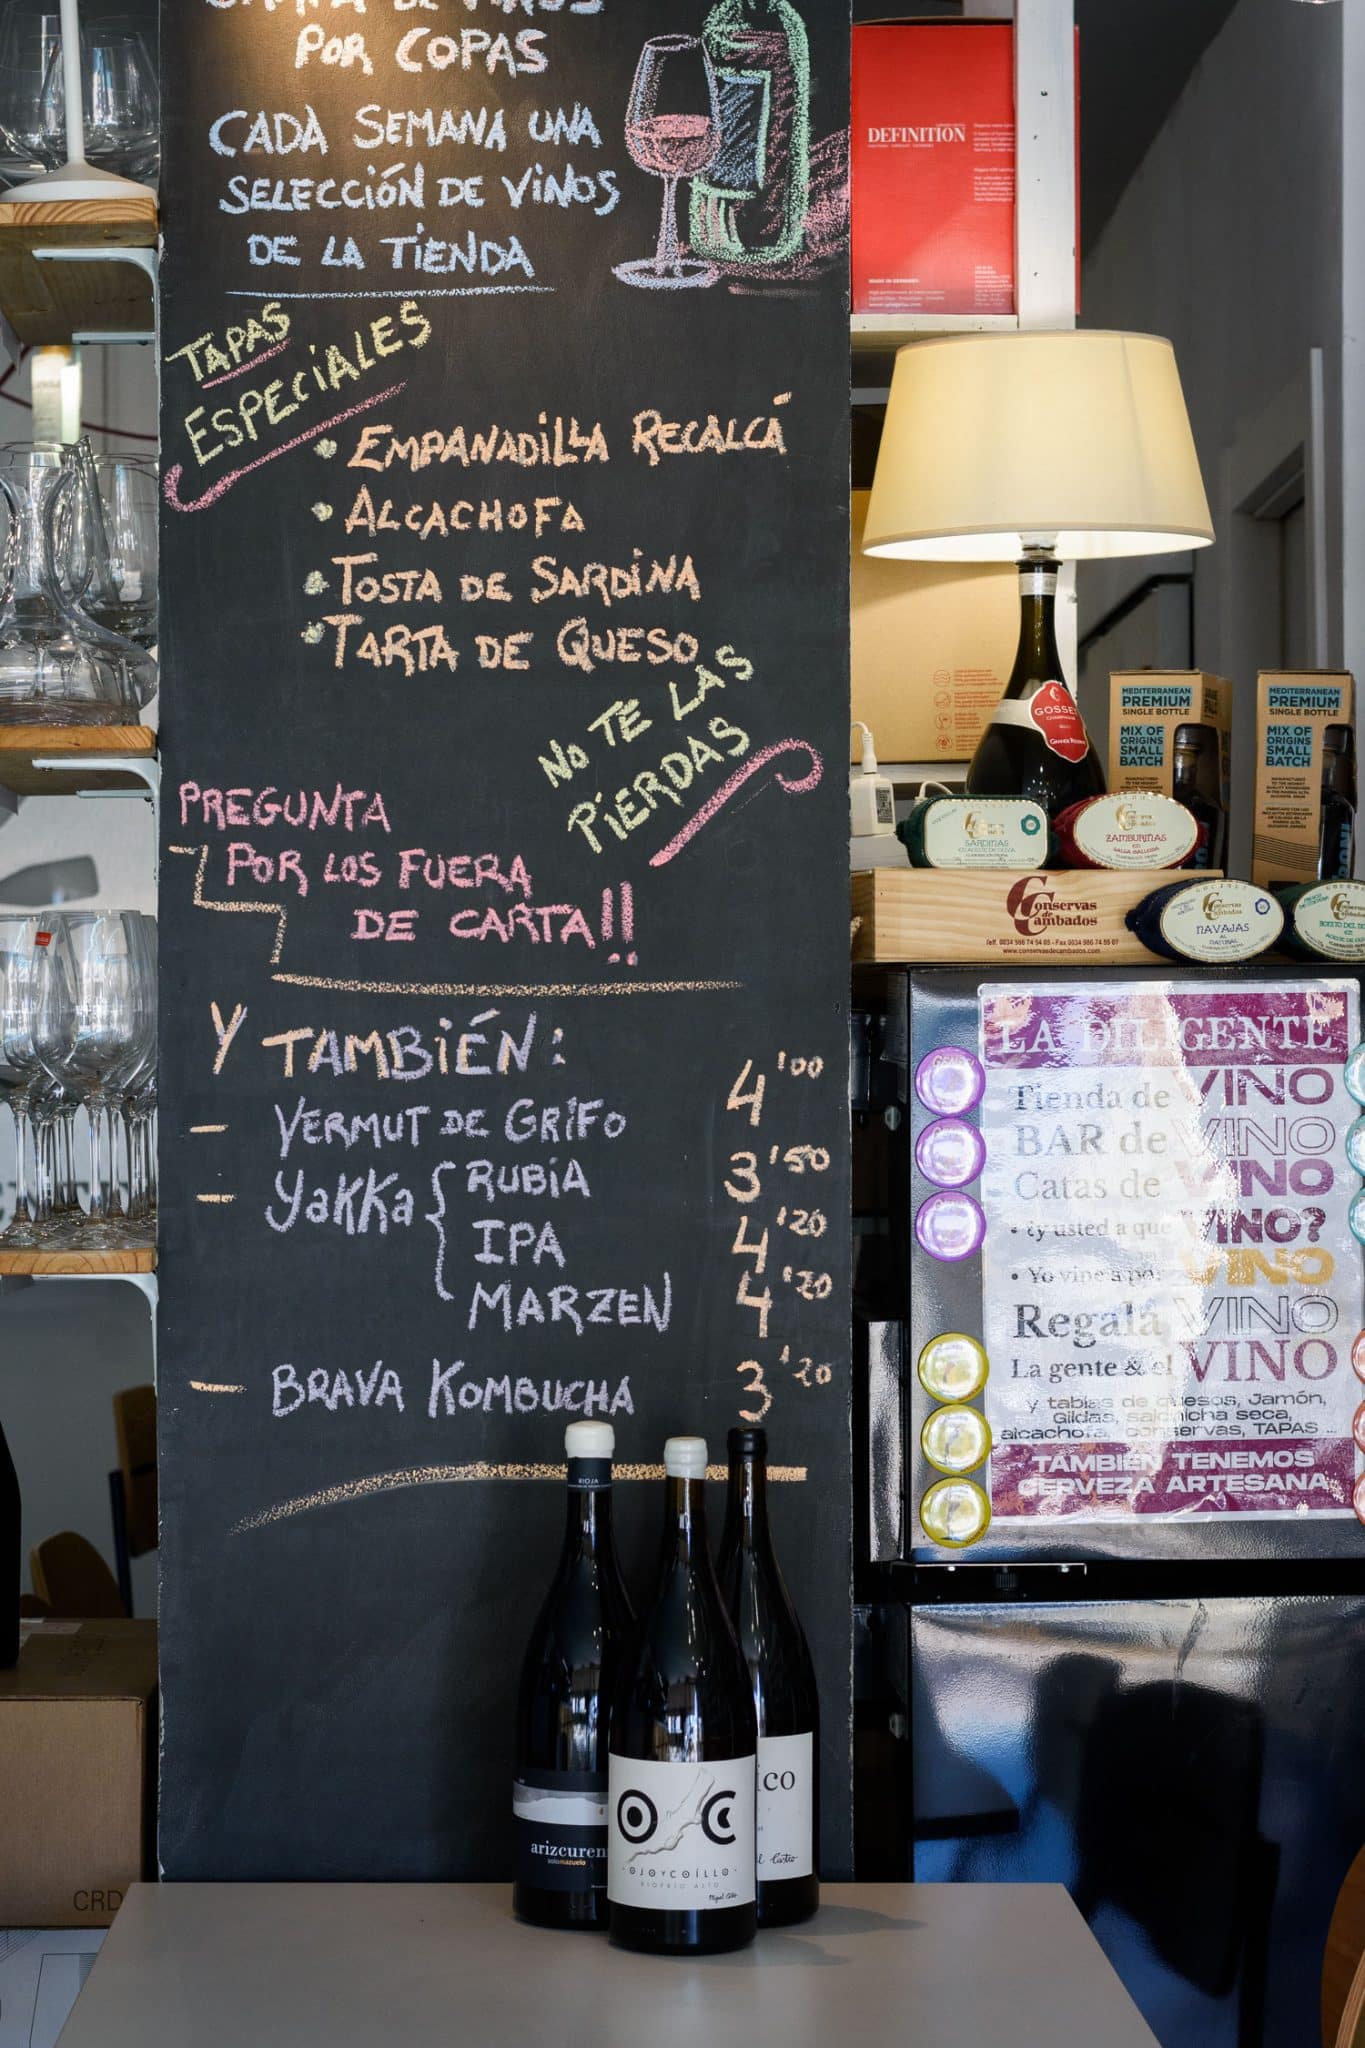 CARTA DE VINOS
POR COPAS
CADA SEMANA UNA
SELECCIÓN DE VINOS
DE LA TIENDA
TAPAS
ESPECIALES
• EMPANADILLA RECALCÁ
• ALCACHOFA
• TOSTA DE SARDINA
• TARTA DE QUESO
NO TE LAS
PIERDAS
PREGUNTA
POR LOS FUERA
DE CARTA!!
Y TAMBIÉN:
- VERMUT DE GRIFO 4'00
- YAKKA { RUBIA 3'50
IPA 4'20
MARZEN 4'20
- BRAVA KOMBUCHA 3'20
DEFINITION
MADE IN GERMANY
GOSSET
CHAMPAGNE
GRANDE RÉSERVE
MEDITERRANEAN
PREMIUM
SINGLE BOTTLE
MIX OF
ORIGINS
SMALL
BATCH
MEDITERRANEAN
PREMIUM
SINGLE BOTTLE
MIX OF
ORIGINS
SMALL
BATCH
SARDINAS
ZAMBURIÑAS
EN
SALSA GALLEGA
Conservas
de
Cambados
Telf. 0034 986 74 54 05 - Fax 0034 986 74 55 07
www.conservasdecambados.com
NAVAJAS
AL
NATURAL
LA DILIGENTE
Tienda de VINO
BAR de VINO
Catas de VINO
• ¿y usted a que VINO?
• Yo vine a por VINO
Regala VINO
La gente & el VINO
y tablas de quesos, Jamón,
Gildas, salchicha seca,
alcachofa, conservas, TAPAS ...
TAMBIÉN TENEMOS
CERVEZA ARTESANA
RIOJA
arizcuren
solomazuelo
OJOYCOÍLLO
RIOFRÍO ALTO
ico
CRD